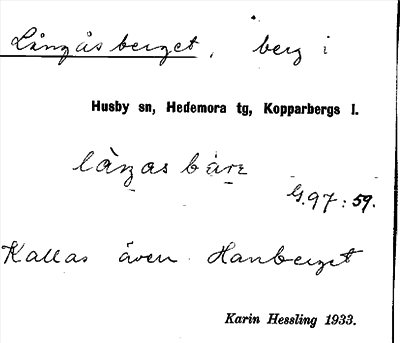 Långåsberget, berg i
Husby sn, Hedemora tg, Kopparbergs l.
G.97:59.
Kallas även Hanberget
Karin Hessling 1933.